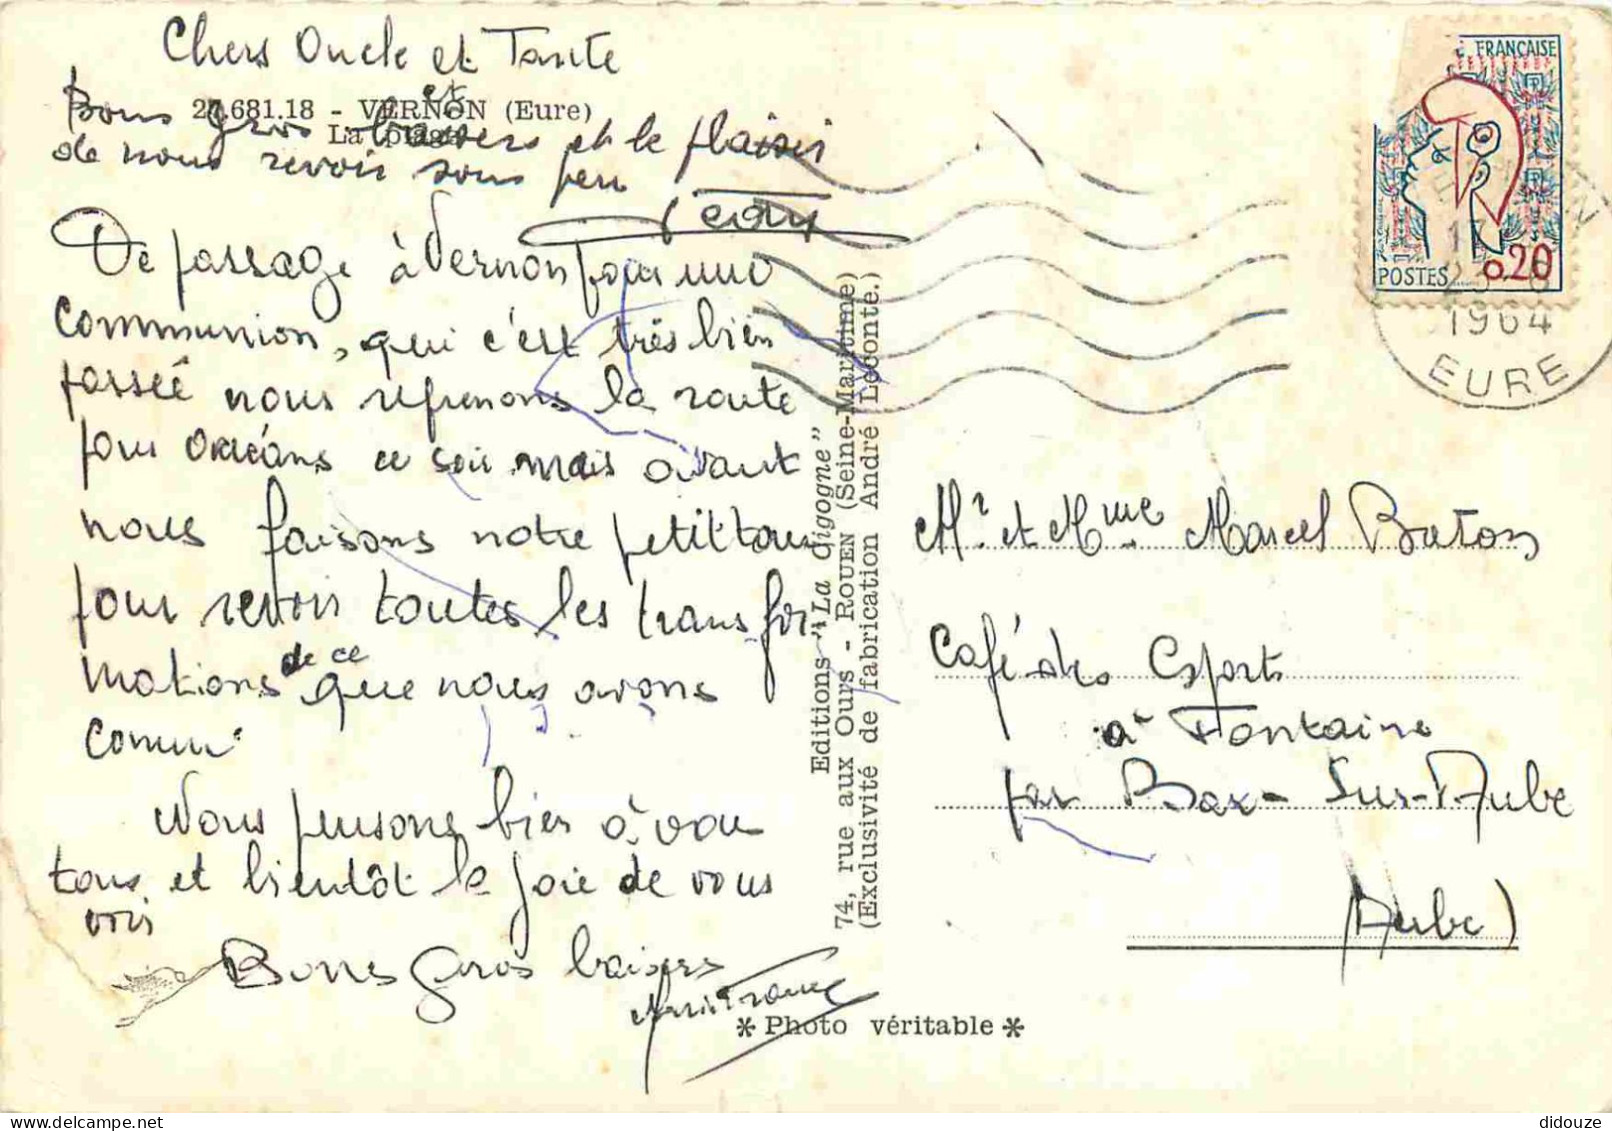 Chers Oncle et Tante
27.681.18 - VERNON (Eure)
La plage
Bons gros baisers et le plaisir
de vous revoir sous peu
De passage à Vernon pour une
communion, qui c'est très bien
passée nous reprenons la route
pour Orléans ce soir mais avant
nous faisons notre petit tour
pour revoir toutes les transfor
mations de ce que nous avons
connu.
Nous pensons bien à vous
tous et bientôt la joie de vous
voir
Bons Gros baisers
Editions "La Cigogne"
74, rue aux Ours - ROUEN (Seine-Maritime)
(Exclusivité de fabrication André Leconte.)
* Photo véritable *
FRANÇAISE
POSTES
0.20
1964
EURE
Mr. et Mme Marcel
Café des Sports
à Fontaine
par Bar-Sur-Aube
(Aube)
didouze